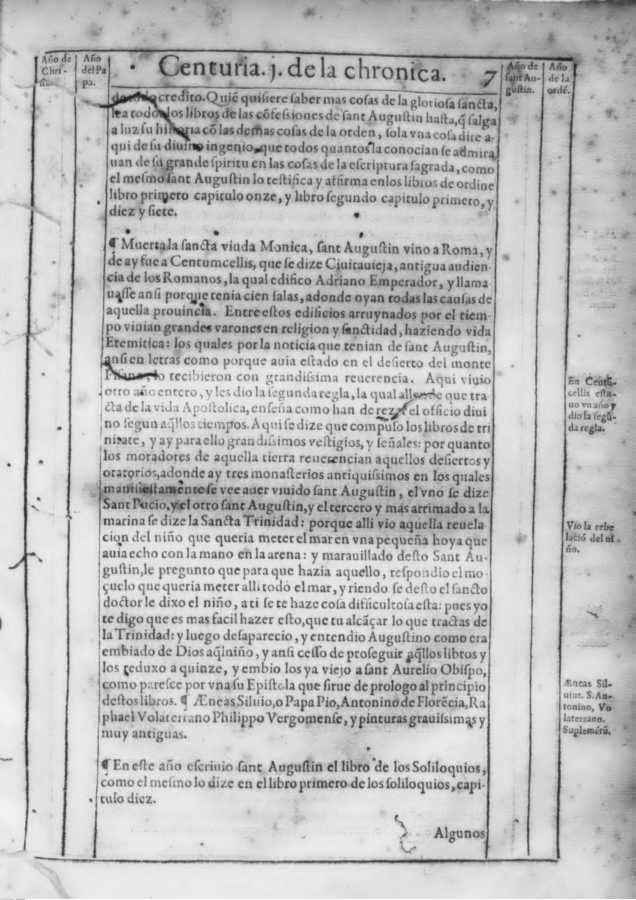 Año de Christo.
Año del Papa.
Centuria. j. de la chronica. 7
Año de sant Augustin.
Año de la ordẽ.
credito. Quiẽ quisiere saber mas cosas de la gloriosa sancta,
lea todos los libros de las cõfessiones de sant Augustin hasta, q̃ salga
a luz su historia cõ las demas cosas de la orden, sola vna cosa dire a-
qui de su diuino ingenio, que todos quantos la conocian se admira
uan de su grande spiritu en las cosas de la escriptura sagrada, como
el mesmo sant Augustin lo testifica y affirma enlos libros de ordine
libro primero capitulo onze, y libro segundo capitulo primero, y
diez y siete.
¶ Muerta la sancta viuda Monica, sant Augustin vino a Roma, y
de ay fue a Centumcellis, que se dize Ciuitauieja, antigua audien-
cia de los Romanos, la qual edifico Adriano Emperador, y llama
uasse ansi porque tenia cien salas, adonde oyan todas las causas de
aquella prouincia. Entre estos edificios arruynados por el tiem-
po viuian grandes varones en religion y sanctidad, haziendo vida
Eremitica: los quales por la noticia que tenian de sant Augustin,
ansi en letras como porque auia estado en el desierto del monte
Pisano, lo recibieron con grandissima reuerencia. Aqui viuio
otro año entero, y les dio la segunda regla, la qual allende que tra
cta de la vida Apostolica, enseña como han de rezar el officio diui
no segun aq̃llos tiempos. Aqui se dize que compuso los libros de tri
nitate, y ay para ello grandissimos vestigios, y señales: por quanto
los moradores de aquella tierra reuerencian aquellos desiertos y
oratorios, adonde ay tres monasterios antiquissimos en los quales
manifiestamente se vee auer viuido sant Augustin, el vno se dize
Sant Pucio, y el otro sant Augustin, y el tercero y mas arrimado a la
marina se dize la Sancta Trinidad: porque alli vio aquella reuela-
cion del niño que queria meter el mar en vna pequeña hoya que
auia echo con la mano en la arena: y marauillado desto Sant Au-
gustin, le pregunto que para que hazia aquello, respondio el mo-
çuelo que queria meter alli todo el mar, y riendo se desto el sancto
doctor le dixo el niño, a ti se te haze cosa difficultosa esta: pues yo
te digo que es mas facil hazer esto, que tu alcãçar lo que tractas de
la Trinidad: y luego desaparecio, y entendio Augustino como era
embiado de Dios aq̃l niño, y ansi cesso de proseguir aq̃llos libros y
los reduxo a quinze, y embio los ya viejo a sant Aurelio Obispo,
como paresce por vna su Epistola que sirue de prologo al principio
destos libros. ¶ Æneas Siluio, o Papa Pio, Antonino de Florẽcia, Ra
phael Volaterrano Philippo Vergomense, y pinturas grauissimas y
muy antiguas.
¶ En este año escriuio sant Augustin el libro de los Soliloquios,
como el mesmo lo dize en el libro primero de los soliloquios, capi-
tulo diez.
Algunos
En Centũ-
cellis estu-
uo vn año y
dio la segũ-
da regla.
Vio la reue
lació del ni
ño.
Æneas Sil-
uius. S. An-
tonino, Vo
laterrano.
Suplemẽtũ.